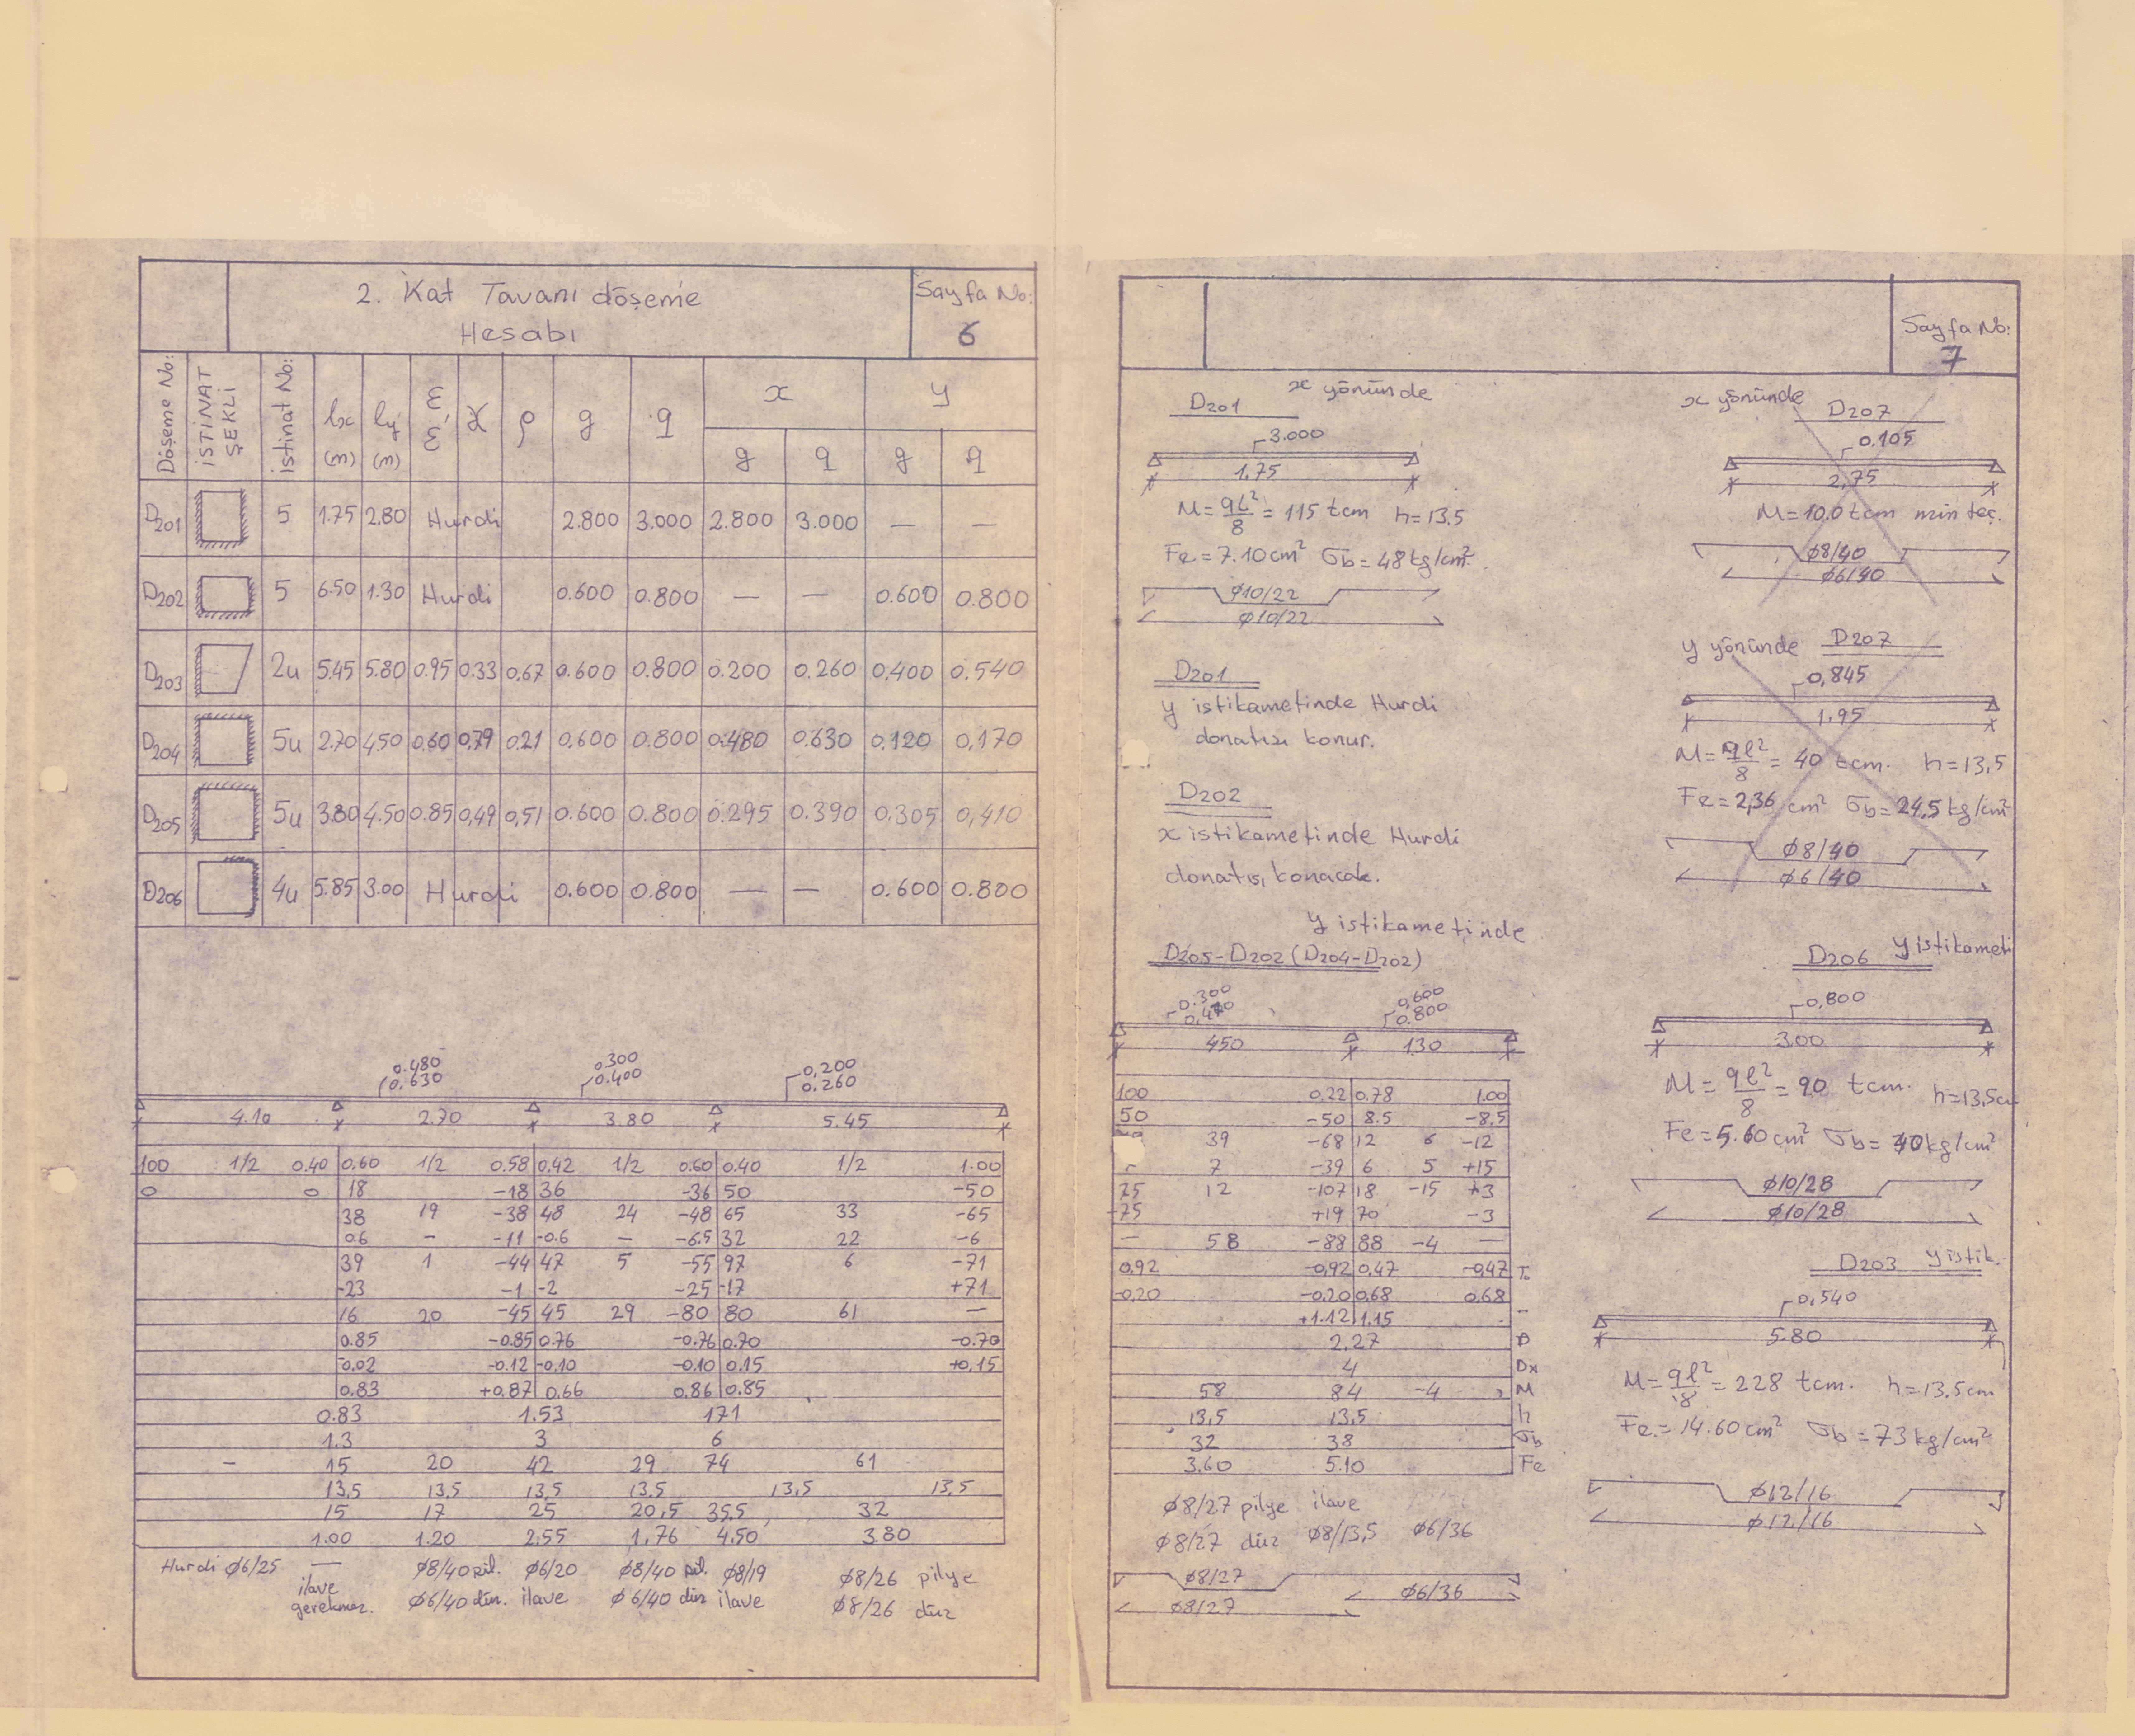 2. Kat Tavanı döşeme
Hesabı
Sayfa No:
6
Döşeme No: İSTİNAT ŞEKLİ İstinat No: lx (m) ly (m) ρ g q x y
g q g q
D201 5 1.75 2.80 Hurdi 2.800 3.000 2.800 3.000 — —
D202 5 6.50 1.30 Hurdi 0.600 0.800 — — 0.600 0.800
D203 2u 5.45 5.80 0.95 0.33 0,67 0.600 0.800 0.200 0.260 0,400 0.540
D204 5u 2.70 4.50 0,60 0,79 0.21 0,600 0.800 0.480 0.630 0,120 0,170
D205 5u 3.80 4.50 0.85 0,49 0,51 0.600 0.800 0.295 0.390 0,305 0,410
D206 4u 5.85 3.00 Hurdi 0.600 0.800 — — 0.600 0.800
0.480 0.300 0,200
0.630 0.400 0.260
4.10 2.70 3.80 5.45
100 1/2 0.40 0.60 1/2 0.58 0,42 1/2 0.60 0.40 1/2 1.00
0 0 18 -18 36 -36 50 -50
38 19 -38 48 24 -48 65 33 -65
0.6 — -11 -0.6 — -6.5 32 22 -6
39 1 -44 47 5 -55 97 6 -71
-23 -1 -2 -25 -17 +71
16 20 -45 45 29 -80 80 61 —
0.85 -0.85 0.76 -0.76 0.70 -0.70
-0.02 -0.12 -0.10 -0.10 0.15 +0,15
0.83 +0.87 0.66 0.86 0.85
0.83 1.53 171
1.3 3 6
— 15 20 42 29 74 61
13,5 13,5 13,5 13.5 13,5 13,5
15 17 25 20,5 35.5 32
1.00 1.20 2,55 1,76 4.50 3.80
Hurdi ø6/25 — ø8/40 pil. ø6/20 ø8/40 pil. ø8/19 ø8/26 pilye
ilave gerekmez. ø6/40 düz. ilave ø6/40 düz ilave ø8/26 düz
Sayfa No:
7
D201 x yönünde
3.000
1,75
M = ql²/8 = 115 tcm h=13.5
Fe = 7.10 cm² σb = 48 kg/cm²
ø10/22
ø10/22
D201
y istikametinde Hurdi
donatısı konur.
D202
x istikametinde Hurdi
donatısı konacak.
y istikametinde
D205-D202 (D204-D202)
0.300 0,600
0.800
450 130
100 0.22 0.78 1.00
50 -50 8.5 -8,5
39 -68 12 6 -12
7 -39 6 5 +15
75 12 -107 18 -15 +3
-75 +19 70 -3
— 58 -88 88 -4 —
0.92 -0,92 0.47 -0,47
-0.20 -0.20 0.68 0.68
+1.12 1.15
2.27
4 Dx
58 84 -4 M
13,5 13,5 h
32 38 σb
3.60 5.10 Fe
ø8/27 pilye ilave
ø8/27 düz ø8/13,5 ø6/36
ø8/27
ø8/27
ø6/36
x yönünde D207
0.105
2,75
M = 10.0 tcm min teç.
ø8/40
ø6/40
y yönünde D207
0,845
1.95
M = ql²/8 = 40 tcm. h=13,5
Fe = 2,36 cm² σb = 24,5 kg/cm²
ø8/40
ø6/40
D206 y istikameti
0,800
3.00
M = ql²/8 = 90 tcm. h=13,5cm
Fe = 5.60 cm² σb = 40 kg/cm²
ø10/28
ø10/28
D203 y istik.
0,540
5.80
M = ql²/8 = 228 tcm. h=13.5cm
Fe = 14.60 cm² σb = 73 kg/cm²
ø12/16
ø12/16